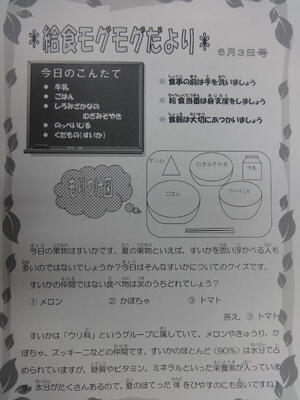 *給食モグモグだより*
6月3日号
今日のこんだて
● 牛乳
● ごはん
● しろみざかなの
むぎみそやき
● のっぺいじる
● くだもの(すいか)
※ 食事の前は手を洗いましょう
※ 給食当番は身支度をしましょう
※ 食器は大切にあつかいましょう
もりつけ図
すいか
むぎみそやき
牛乳
ごはん
のっぺいじる
今日の果物はすいかです。夏の果物といえば、すいかを思い浮かべる人も
多いのではないでしょうか?今日はそんなすいかについてのクイズです。
すいかの仲間ではない食べ物は次のうちどれでしょう?
① メロン ② かぼちゃ ③ トマト
答え、③ トマト
すいかは「ウリ科」というグループに属していて、メロンやきゅうり、か
ぼちゃ、ズッキーニなどの仲間です。すいかのほとんど(90%)は水分で占
められていますが、糖質やビタミン、ミネラルといった栄養が入っていま
す。水分がたくさんあるので、夏のほてった体をひやすのにも良いですね!